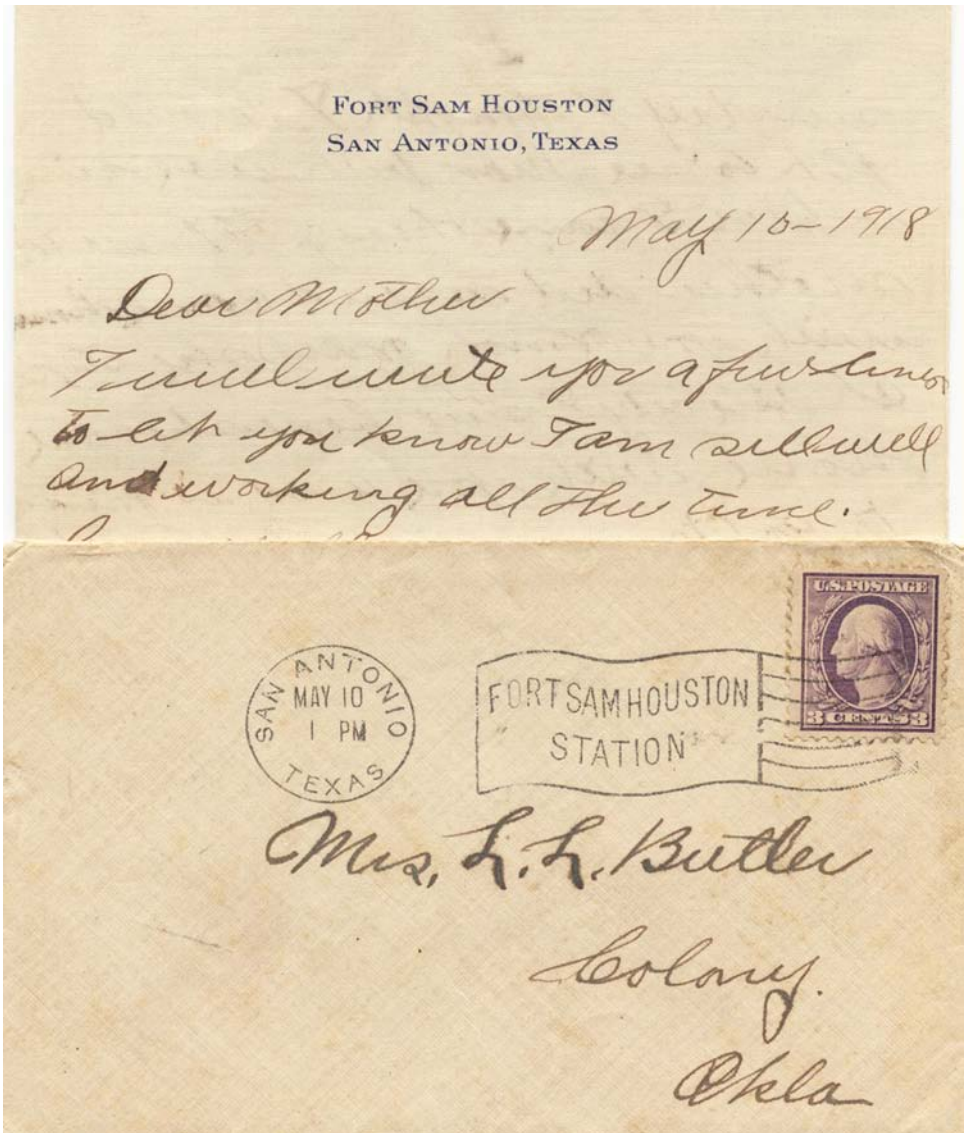 FORT SAM HOUSTON
SAN ANTONIO, TEXAS
May 10-1918
Dear Mother
I will write you a few lines
to let you know I am still well
and working all the time.
U.S. POSTAGE
3 CENTS 3
SAN ANTONIO
MAY 10
1 PM
TEXAS
FORT SAM HOUSTON
STATION
Mrs. L. L. Butler
Colony.
Okla